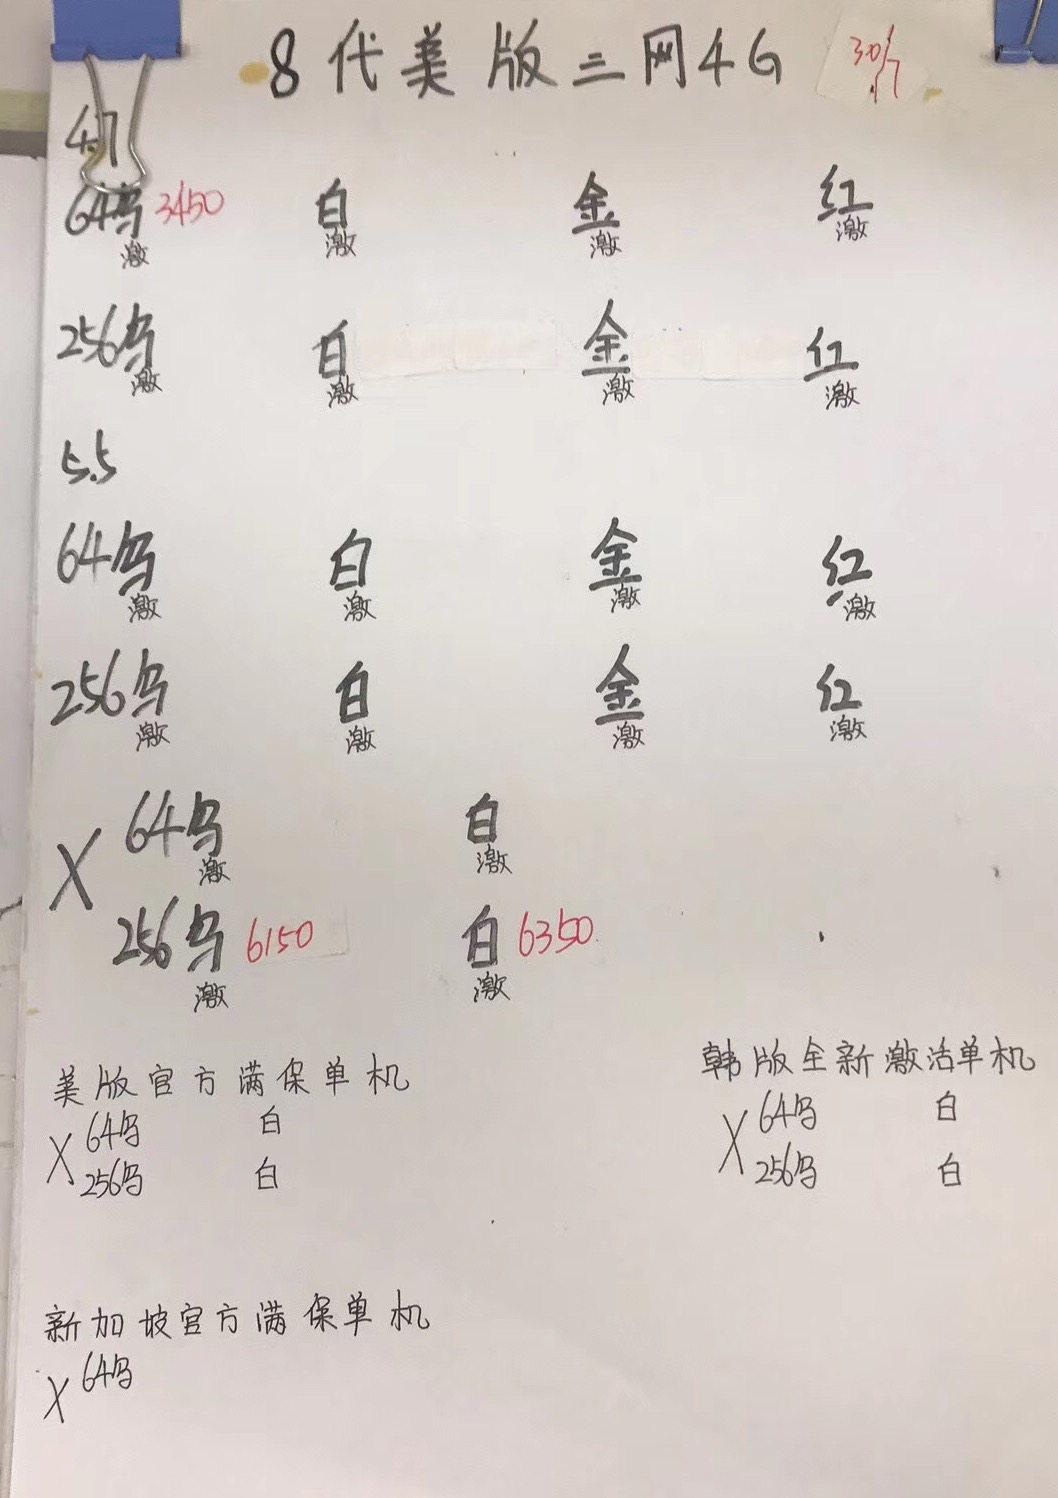 8代美版三网4G 30/7
4.7
64乌 3450 白 金 红
激 激 激 激
256乌 白 金 红
激 激 激 激
5.5
64乌 白 金 红
激 激 激 激
256乌 白 金 红
激 激 激 激
X 64乌 白
激 激
256乌 6150 白 6350
激 激
美版官方满保单机
X 64乌 白
256乌 白
韩版全新激活单机
X 64乌 白
256乌 白
新加坡官方满保单机
X 64乌